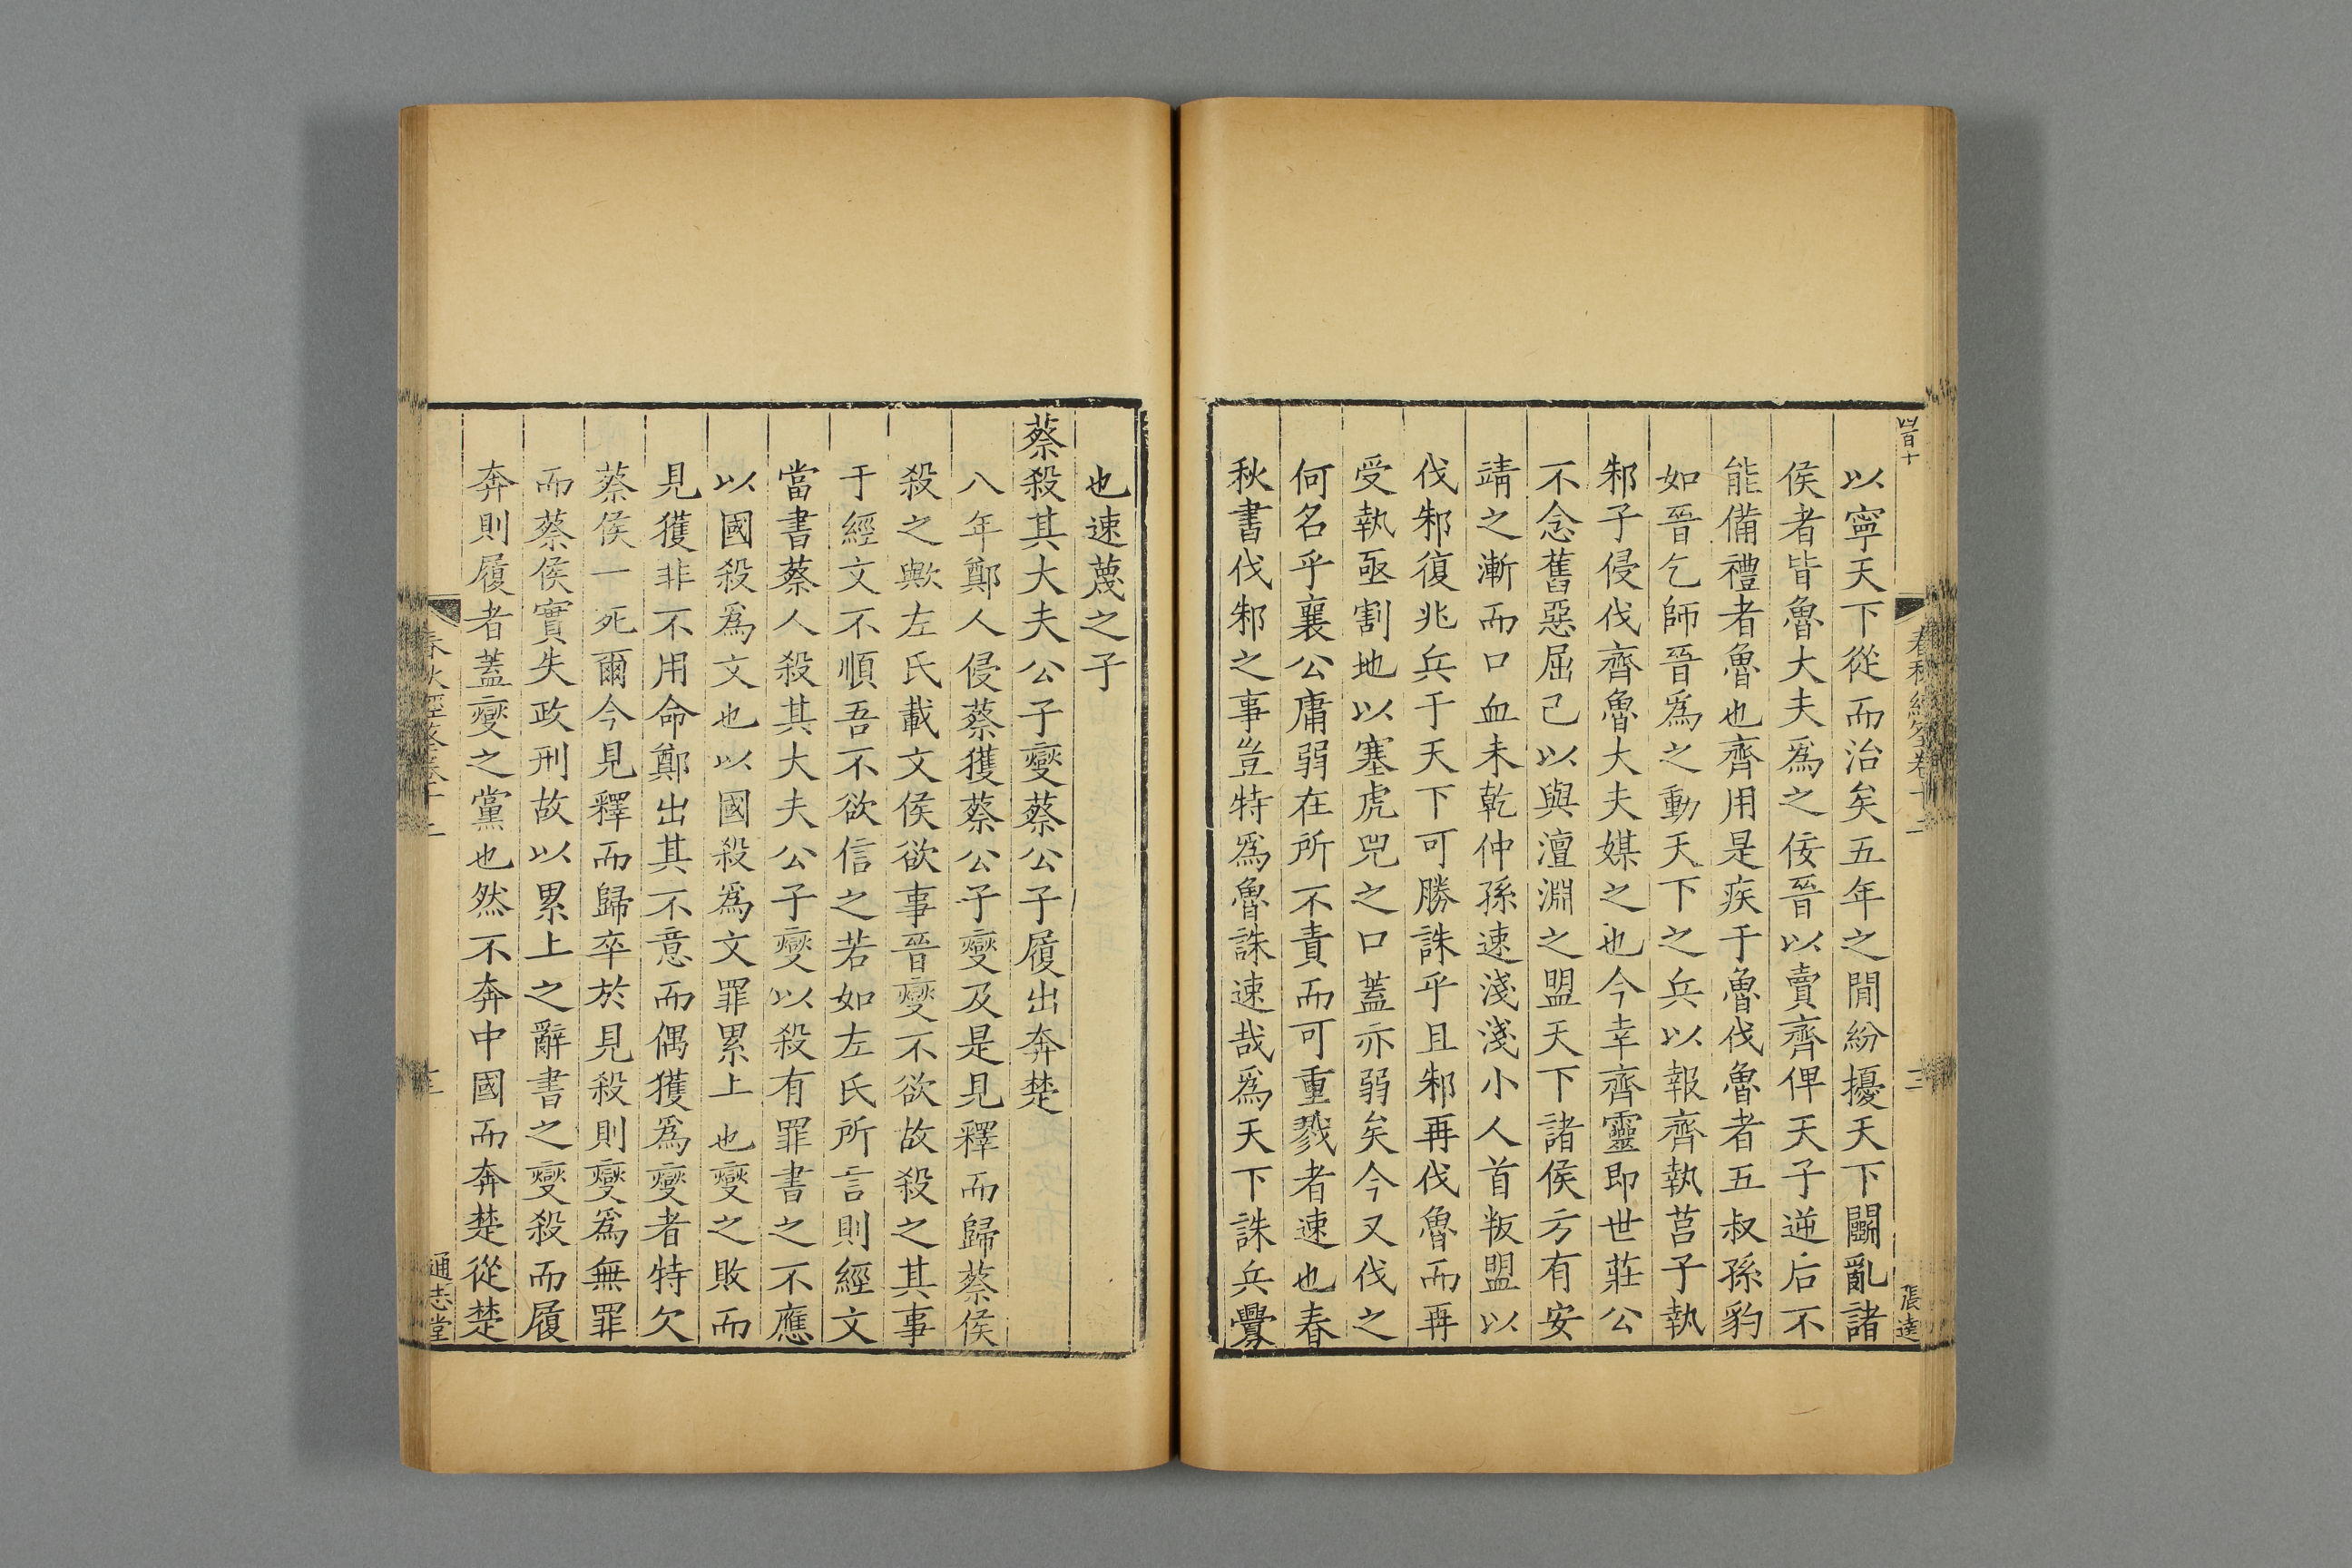 四百十
張達
以寧天下從而治矣五年之閒紛擾天下鬭亂諸
侯者皆魯大夫爲之佞晉以賣齊俾天子逆后不
能備禮者魯也齊用是疾于魯伐魯者五叔孫豹
如晉乞師晉爲之動天下之兵以報齊執莒子執
邾子侵伐齊魯大夫媒之也今幸齊靈即世莊公
不念舊惡屈己以與澶淵之盟天下諸侯方有安
靖之漸而口血未乾仲孫速淺淺小人首叛盟以
伐邾復兆兵于天下可勝誅乎且邾再伐魯而再
受執亟割地以塞虎兕之口蓋亦弱矣今又伐之
何名乎襄公庸弱在所不責而可重戮者速也春
秋書伐邾之事豈特爲魯誅速哉爲天下誅兵釁
也速蔑之子
蔡殺其大夫公子燮蔡公子履出奔楚
八年鄭人侵蔡獲蔡公子燮及是見釋而歸蔡侯
殺之歟左氏載文侯欲事晉燮不欲故殺之其事
于經文不順吾不欲信之若如左氏所言則經文
當書蔡人殺其大夫公子燮以殺有罪書之不應
以國殺爲文也以國殺爲文罪累上也燮之敗而
見獲非不用命鄭出其不意而偶獲爲燮者特欠
蔡侯一死爾今見釋而歸卒於見殺則燮爲無罪
而蔡侯實失政刑故以累上之辭書之燮殺而履
奔則履者蓋燮之黨也然不奔中國而奔楚從楚
通志堂